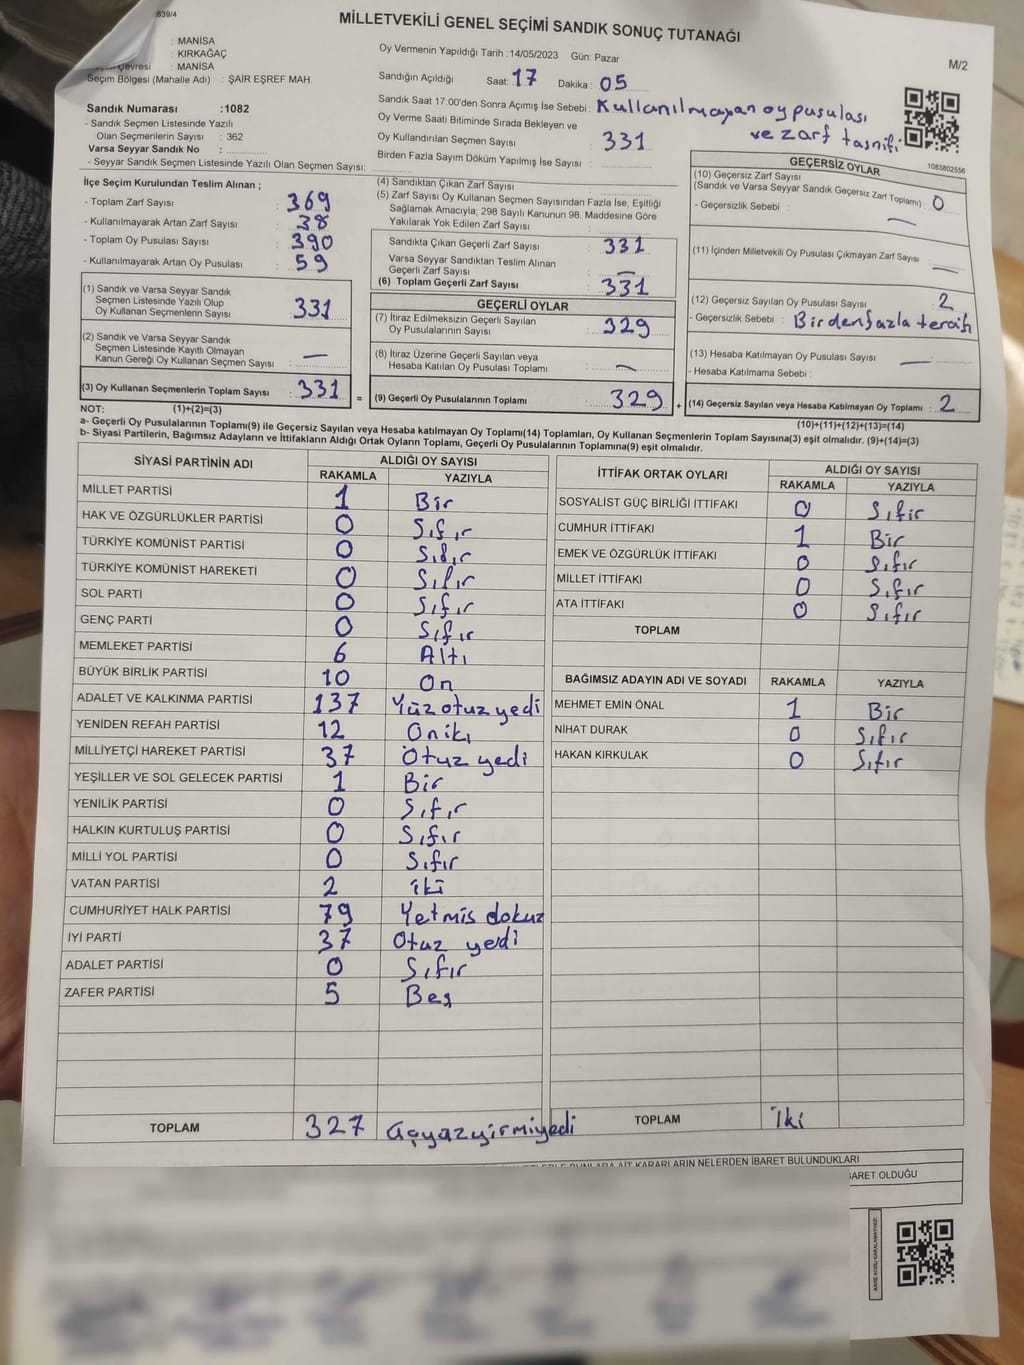 839/4
MİLLETVEKİLİ GENEL SEÇİMİ SANDIK SONUÇ TUTANAĞI
M/2
: MANİSA
: KIRKAĞAÇ
Çevresi : MANİSA
Seçim Bölgesi (Mahalle Adı) : ŞAİR EŞREF MAH.
Oy Vermenin Yapıldığı Tarih : 14/05/2023 Gün: Pazar
Sandığın Açıldığı Saat: 17 Dakika: 05
Sandık Saat 17:00'den Sonra Açımış İse Sebebi : Kullanılmayan oy pusulası
ve zarf tasnifi
Oy Verme Saati Bitiminde Sırada Bekleyen ve
Oy Kullandırılan Seçmen Sayısı : 331
Birden Fazla Sayım Döküm Yapılmış İse Sayısı :
Sandık Numarası :1082
- Sandık Seçmen Listesinde Yazılı
Olan Seçmenlerin Sayısı : 362
Varsa Seyyar Sandık No :
- Seyyar Sandık Seçmen Listesinde Yazılı Olan Seçmen Sayısı:
1083802556
İlçe Seçim Kurulundan Teslim Alınan ;
- Toplam Zarf Sayısı : 369
- Kullanılmayarak Artan Zarf Sayısı : 38
- Toplam Oy Pusulası Sayısı : 390
- Kullanılmayarak Artan Oy Pusulası : 59
(1) Sandık ve Varsa Seyyar Sandık
Seçmen Listesinde Yazılı Olup
Oy Kullanan Seçmenlerin Sayısı : 331
(2) Sandık ve Varsa Seyyar Sandık
Seçmen Listesinde Kayıtlı Olmayan
Kanun Gereği Oy Kullanan Seçmen Sayısı : —
(3) Oy Kullanan Seçmenlerin Toplam Sayısı : 331 =
(4) Sandıktan Çıkan Zarf Sayısı :
(5) Zarf Sayısı Oy Kullanan Seçmen Sayısından Fazla İse, Eşitliği
Sağlamak Amacıyla; 298 Sayılı Kanunun 98. Maddesine Göre
Yakılarak Yok Edilen Zarf Sayısı :
Sandıkta Çıkan Geçerli Zarf Sayısı : 331
Varsa Seyyar Sandıktan Teslim Alınan
Geçerli Zarf Sayısı : —
(6) Toplam Geçerli Zarf Sayısı : 331
GEÇERLİ OYLAR
(7) İtiraz Edilmeksizin Geçerli Sayılan
Oy Pusulalarının Sayısı : 329
(8) İtiraz Üzerine Geçerli Sayılan veya
Hesaba Katılan Oy Pusulası Toplamı : —
(9) Geçerli Oy Pusulalarının Toplamı : 329 +
GEÇERSİZ OYLAR
(10) Geçersiz Zarf Sayısı
(Sandık ve Varsa Seyyar Sandık Geçersiz Zarf Toplamı) : 0
- Geçersizlik Sebebi : —
(11) İçinden Milletvekili Oy Pusulası Çıkmayan Zarf Sayısı : —
(12) Geçersiz Sayılan Oy Pusulası Sayısı : 2
- Geçersizlik Sebebi : Birden fazla tercih
(13) Hesaba Katılmayan Oy Pusulası Sayısı : —
- Hesaba Katılmama Sebebi :
(14) Geçersiz Sayılan veya Hesaba Katılmayan Oy Toplamı : 2
NOT: (1)+(2)=(3)
(10)+(11)+(12)+(13)=(14)
a- Geçerli Oy Pusulalarının Toplamı(9) ile Geçersiz Sayılan veya Hesaba katılmayan Oy Toplamı(14) Toplamları, Oy Kullanan Seçmenlerin Toplam Sayısına(3) eşit olmalıdır. (9)+(14)=(3)
b- Siyasi Partilerin, Bağımsız Adayların ve İttifakların Aldığı Ortak Oyların Toplamı, Geçerli Oy Pusulalarının Toplamına(9) eşit olmalıdır.
SİYASİ PARTİNİN ADI ALDIĞI OY SAYISI
RAKAMLA YAZIYLA
MİLLET PARTİSİ 1 Bir
HAK VE ÖZGÜRLÜKLER PARTİSİ 0 Sıfır
TÜRKİYE KOMÜNİST PARTİSİ 0 Sıfır
TÜRKİYE KOMÜNİST HAREKETİ 0 Sıfır
SOL PARTİ 0 Sıfır
GENÇ PARTİ 0 Sıfır
MEMLEKET PARTİSİ 6 Altı
BÜYÜK BİRLİK PARTİSİ 10 On
ADALET VE KALKINMA PARTİSİ 137 Yüz otuz yedi
YENİDEN REFAH PARTİSİ 12 Oniki
MİLLİYETÇİ HAREKET PARTİSİ 37 Otuz yedi
YEŞİLLER VE SOL GELECEK PARTİSİ 1 Bir
YENİLİK PARTİSİ 0 Sıfır
HALKIN KURTULUŞ PARTİSİ 0 Sıfır
MİLLİ YOL PARTİSİ 0 Sıfır
VATAN PARTİSİ 2 iki
CUMHURİYET HALK PARTİSİ 79 Yetmis dokuz
İYİ PARTİ 37 Otuz yedi
ADALET PARTİSİ 0 Sıfır
ZAFER PARTİSİ 5 Beş
TOPLAM 327 üçyüzyirmiyedi
İTTİFAK ORTAK OYLARI ALDIĞI OY SAYISI
RAKAMLA YAZIYLA
SOSYALİST GÜÇ BİRLİĞİ İTTİFAKI 0 Sıfır
CUMHUR İTTİFAKI 1 Bir
EMEK VE ÖZGÜRLÜK İTTİFAKI 0 Sıfır
MİLLET İTTİFAKI 0 Sıfır
ATA İTTİFAKI 0 Sıfır
TOPLAM
BAĞIMSIZ ADAYIN ADI VE SOYADI RAKAMLA YAZIYLA
MEHMET EMİN ÖNAL 1 Bir
NİHAT DURAK 0 Sıfır
HAKAN KIRKULAK 0 Sıfır
TOPLAM iki
BUNLARA AİT KARARLARIN NELERDEN İBARET BULUNDUKLARI
BARET OLDUĞU
KARE KODU KARALAMAYINIZ!